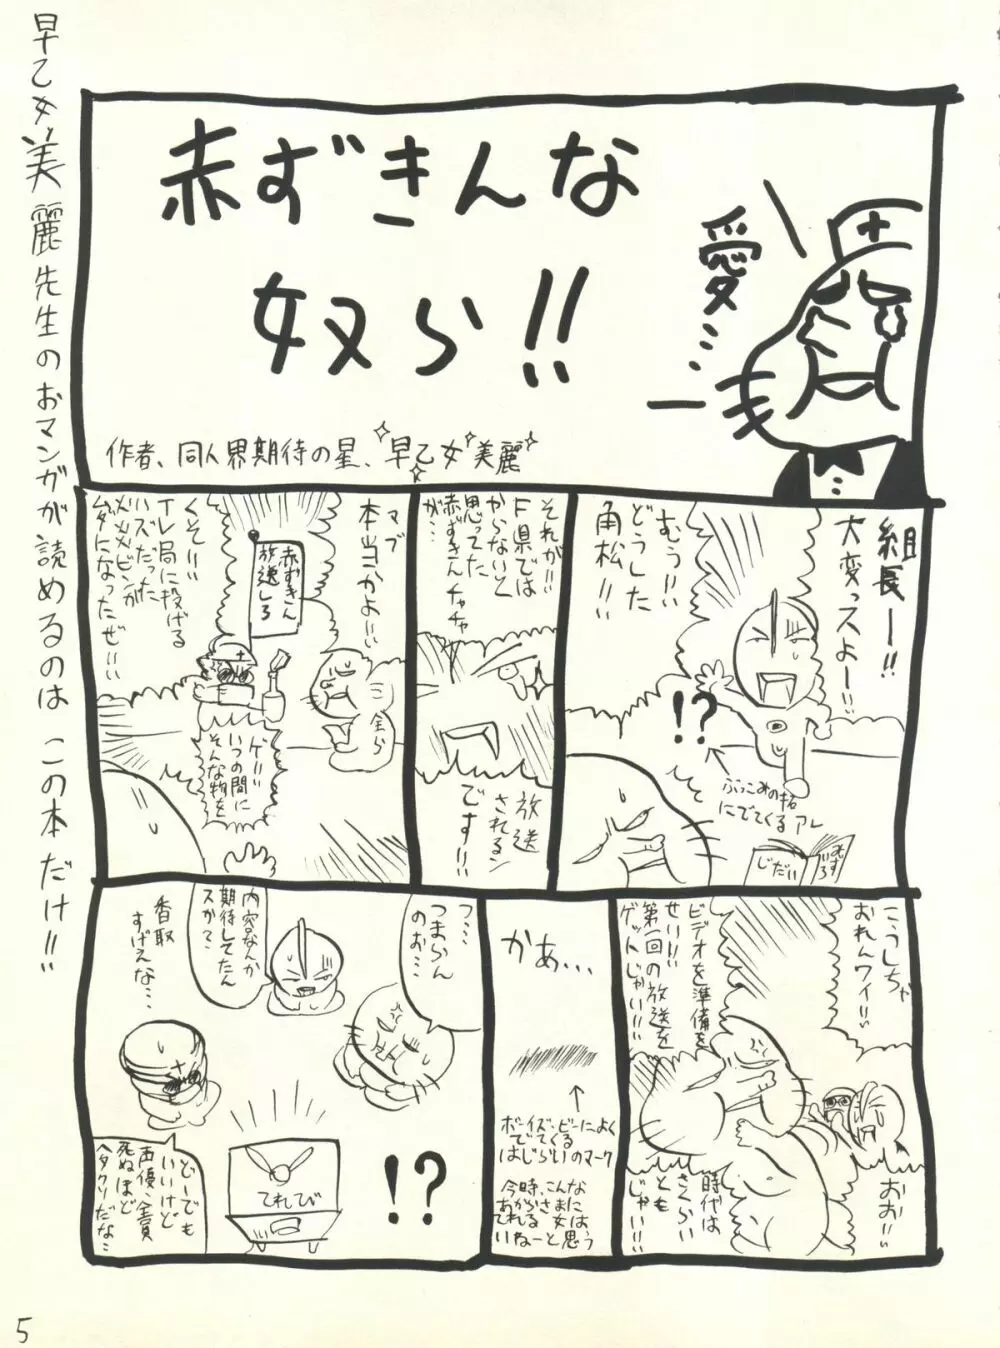 早乙女美麗先生のおマンガが読めるのは この本だけ!!
赤ずきんな
奴ら!!
愛…
作者、同人界期待の星、早乙女美麗
組長ー!!
大変っスよー!!
むぅ!!
どうした
角松!!
!?
ぶっこみの拓
にでてくるアレ
じだい
それが!!
F県では
やらないと
思ってた
赤ずきんチャチャ
が…
放送
されるン
です!!
マブ
本当かよ!!
赤ずきん
放送しろ
くそ!!
テレ局に投げる
ハズだった
火炎ビンが
ムダになったぜ!!
金ら
ゲ!!
いつの間に
そんな物を
こうしちゃ
おれんワイ!!
ビデオを準備を
せい!!
第一回の放送を
ゲットじゃい!!
おお!!
時代は
さくらい
とも
じゃい!!
かあ…
ボーイズ・ビーによく
でてくる
はじらいのマーク
今時、こんな
あからさまに
てれる女は
いねーと思う
つ…
つまらん
のお…
内容なんか
期待してたん
スか?…
香取
すげえな…
どーでも
いいけど
声優、全員
死ぬほど
ヘタクソだな…
てれび
!?
5